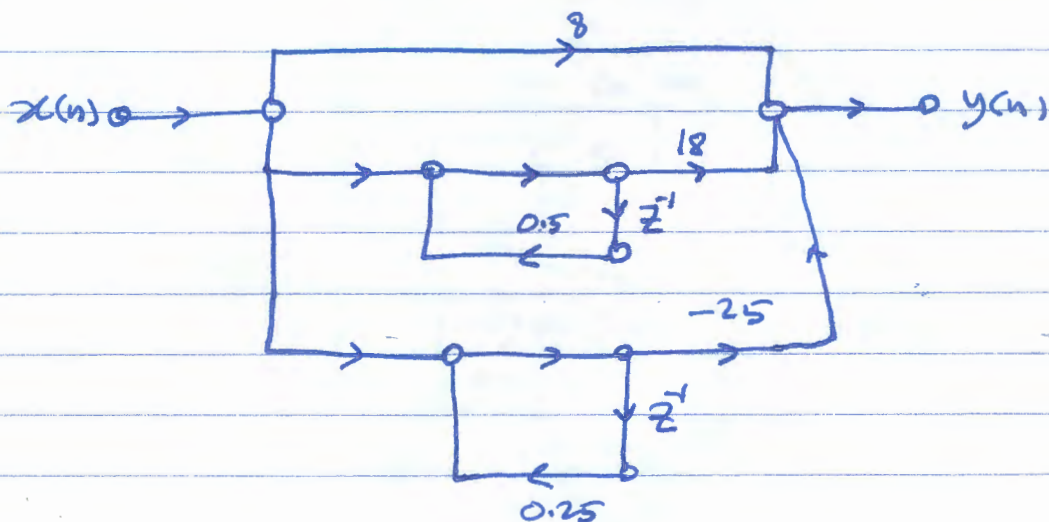 8
x(n)
y(n)
18
0.5
z⁻¹
-25
z⁻¹
0.25